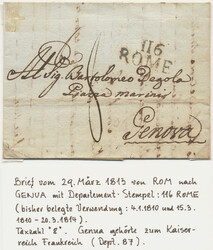 116
ROME
Al Sig. Bartolomeo Degola
Piazza marini
Genova
Brief vom 29. März 1813 von ROM nach
GENUA mit Departement-Stempel: 116 ROME
(bisher belegte Verwendung: 4.1.1810 und 15.3.
1810 - 20.3.1814).
Taxzahl "8". Genua gehörte zum Kaiser-
reich Frankreich (Dept. 87).